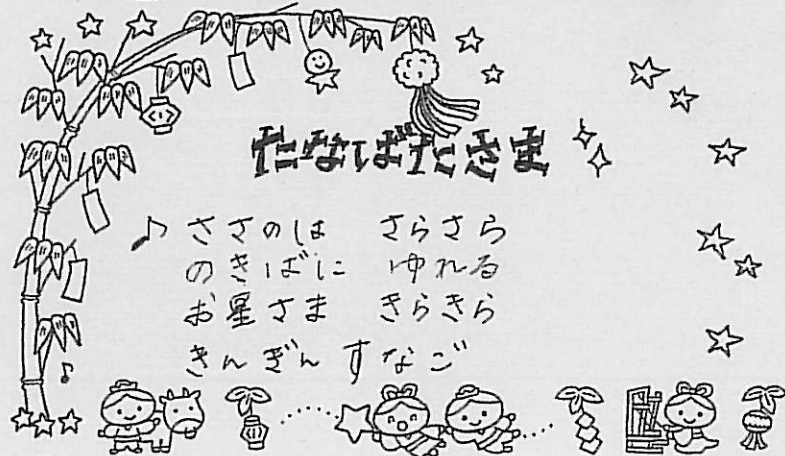 たなばたさま
♪ ささのは さらさら
のきばに ゆれる
お星さま きらきら
きんぎん すなご